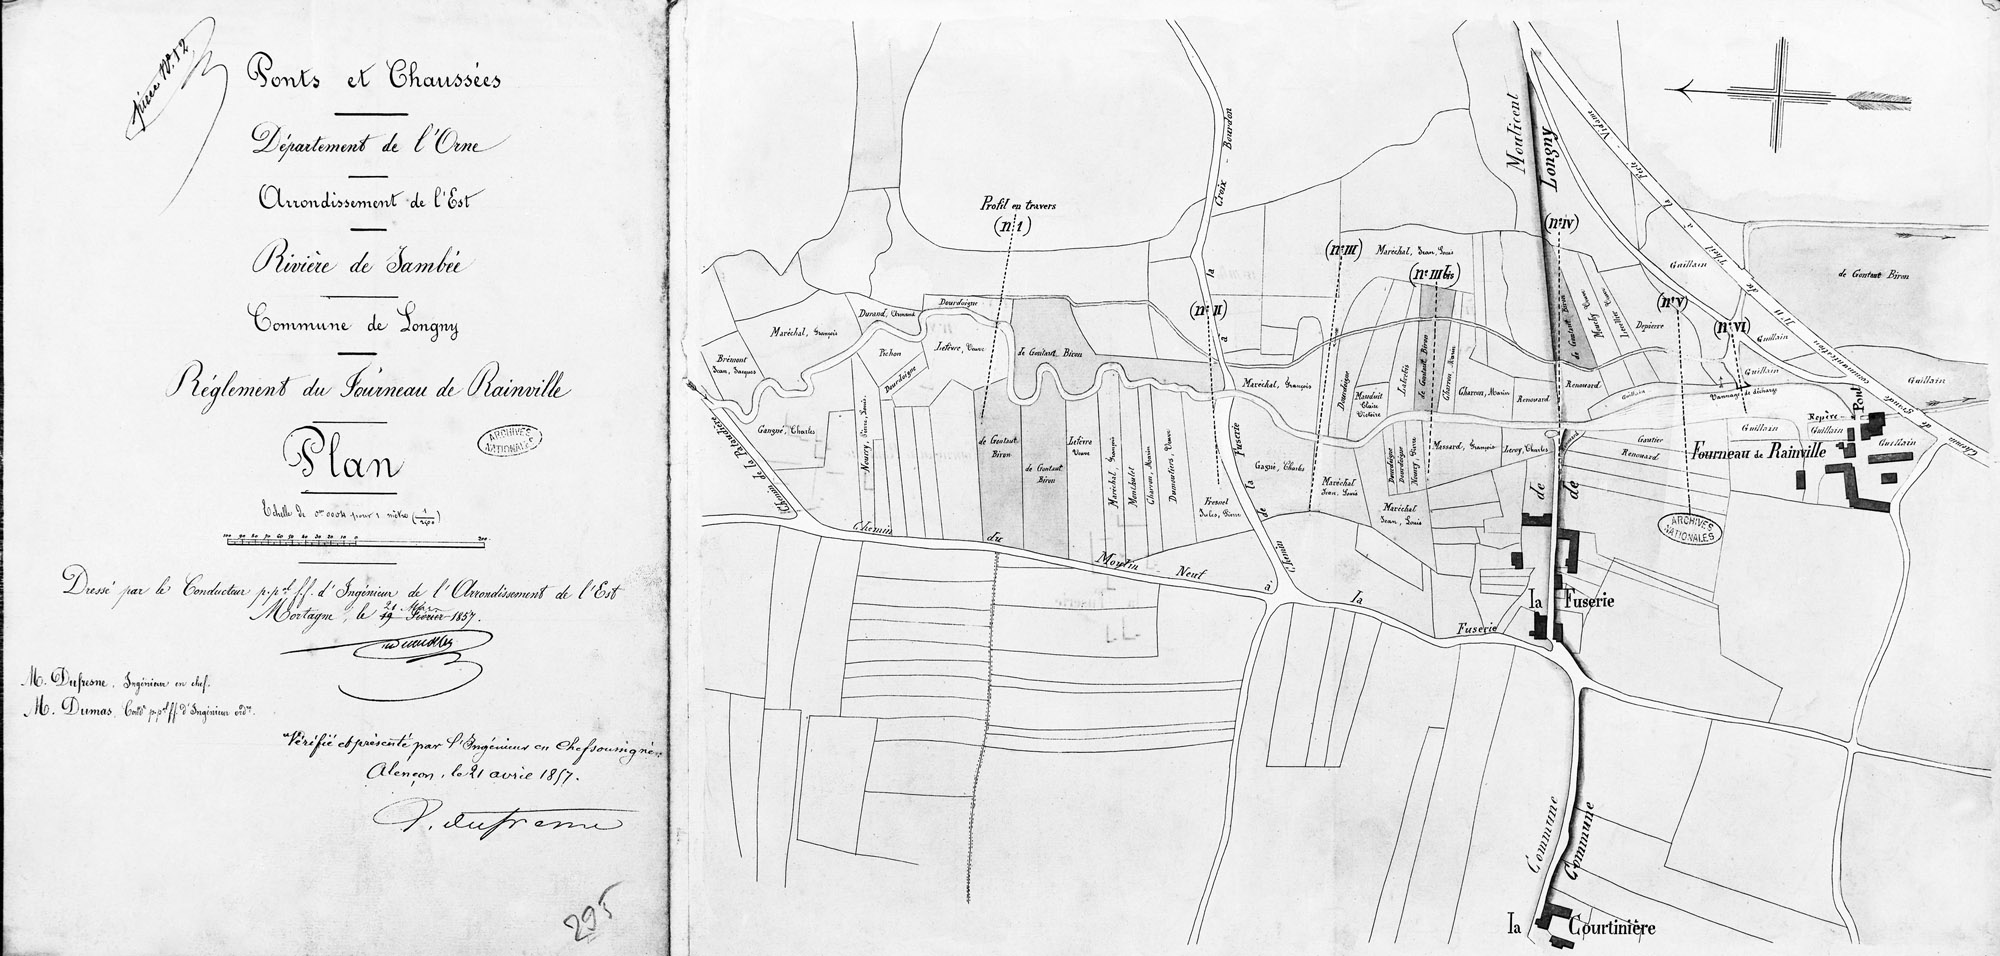 pièce N° 12
Ponts et Chaussées
Département de l'Orne
Arrondissement de l'Est
Rivière de Jambée
Commune de Longny
Réglement du Fourneau de Rainville
ARCHIVES NATIONALES
Plan
Echelle de 0m 0004 pour 1 mètre
100 90 80 70 60 50 40 30 20 10 0 200
Dressé par le Conducteur p.pal f.f. d'Ingénieur de l'Arrondissement de l'Est
Mortagne, le 21 Mars 1857.
M. Dufresne, Ingénieur en chef.
M. Dumas, Condr p.pal ff. d'Ingénieur ordre.
Vérifié et présenté par l'Ingénieur en Chef soussigné
Alençon, le 21 avril 1857.
P. Dufresne
295
Profil en travers
(n° I)
(n° II)
(n° III)
(n° III bis)
(n° IV)
(n° V)
(n° VI)
Croix - Bourdon
la
à
Fuserie
la
de
Chemin
Moulicent
Longny
de
de
Commune
Commune
Chemin de Grande communication N° 11 de Theil à la Ferté - Vidame
Brémont Jean, Jacques
Maréchal, François
Durand, Armand
Dourdoigne
Pichon
Dourdoigne
Lefèvre, Veuve
de Gontaut Biron
Gangné, Charles
Nourry, Pierre, Louis
de Gontaut Biron
de Gontaut Biron
Lefèvre Veuve
Maréchal, François
Monthulet
Charron, Marin
Dumoutiers, Veuve
Fresnel Jules, Pierre
Maréchal, François
Gagné, Charles
Maréchal, Jean, Louis
Dourdoigne
Mauduit Claire Victoire
de Gontaut Biron
Charron, Marin
Charron, Marin
Renouard
Dourdoigne
Dourdoigne
Nourry, Pierre
Massard, François
Leroy, Charles
Maréchal Jean, Louis
Maréchal Jean, Louis
de Gontaut Biron
Depierre
Renouard
Guillain
Guillain
Guillain
Guillain
Vannage de décharge
Gautier
Renouard
Guillain
Repère
Guillain
Pont
Guillain
Guillain
de Gontaut Biron
Fourneau de Rainville
ARCHIVES NATIONALES
Chemin de la Pataudière
Chemin du Moulin - Neuf à la Fuserie
la Fuserie
la Courtinière